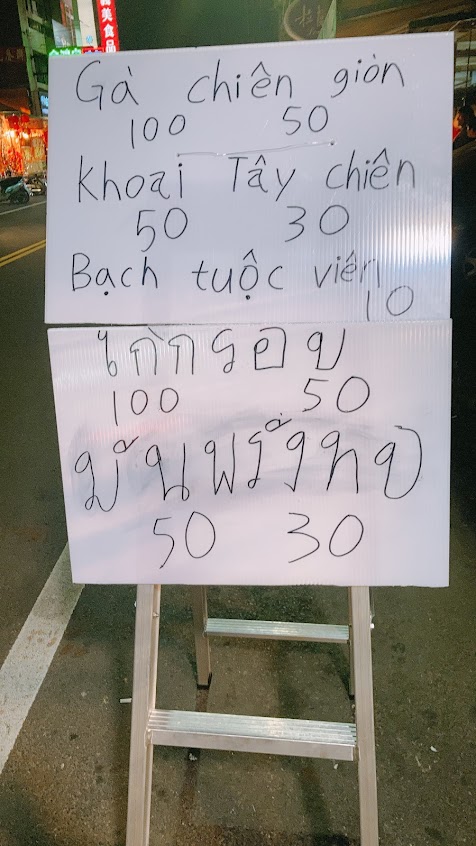 美食品
Gà chiên giòn
100 50
Khoai Tây chiên
50 30
Bạch tuộc viên
10
ไก่กรอบ
100 50
มันฝรั่งทอ
50 30